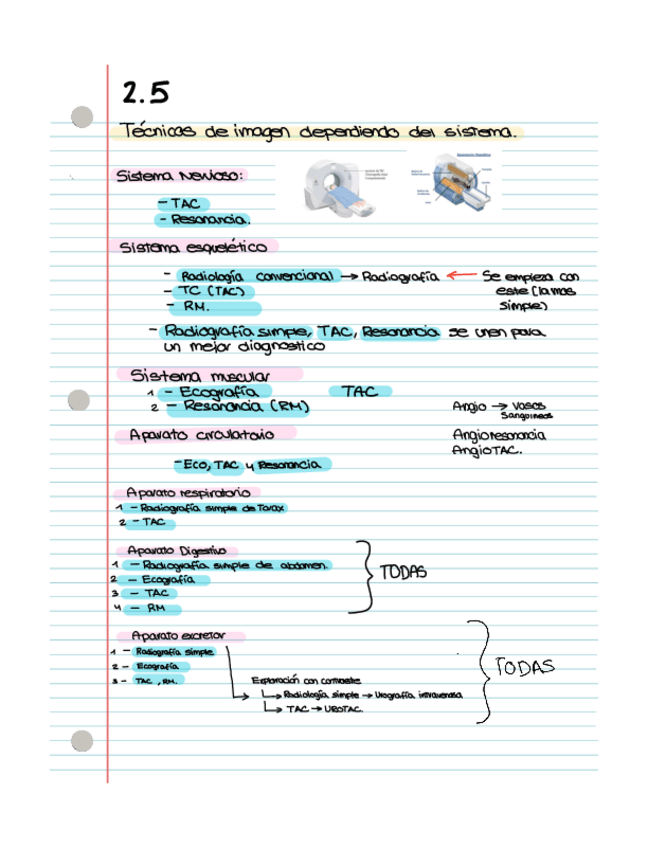 2.5
Técnicas de imagen dependiendo del sistema.
Sistema Nervioso:
- TAC
- Resonancia.
Sistema esquelético
- Radiología convencional → Radiografía ← Se empieza con
este (la mas
simple)
- TC (TAC)
- RM.
- Radiografía simple, TAC, Resonancia se unen para
un mejor diagnostico
Sistema muscular
1 - Ecografía TAC
2 - Resonancia (RM)
Angio → Vasos
Sanguineos
Aparato circulatorio
Angioresonancia
AngioTAC.
- Eco, TAC y Resonancia
Aparato respiratorio
1 - Radiografía simple de Torax
2 - TAC
Aparato Digestivo
1 - Radiografía simple de abdomen.
2 - Ecografía
3 - TAC
4 - RM
TODAS
Aparato excretor
1 - Radiografía simple
2 - Ecografía
3 - TAC, RM.
Exploración con contraste
↳ Radiología simple → Urografía intravenosa
↳ TAC → UROTAC.
TODAS